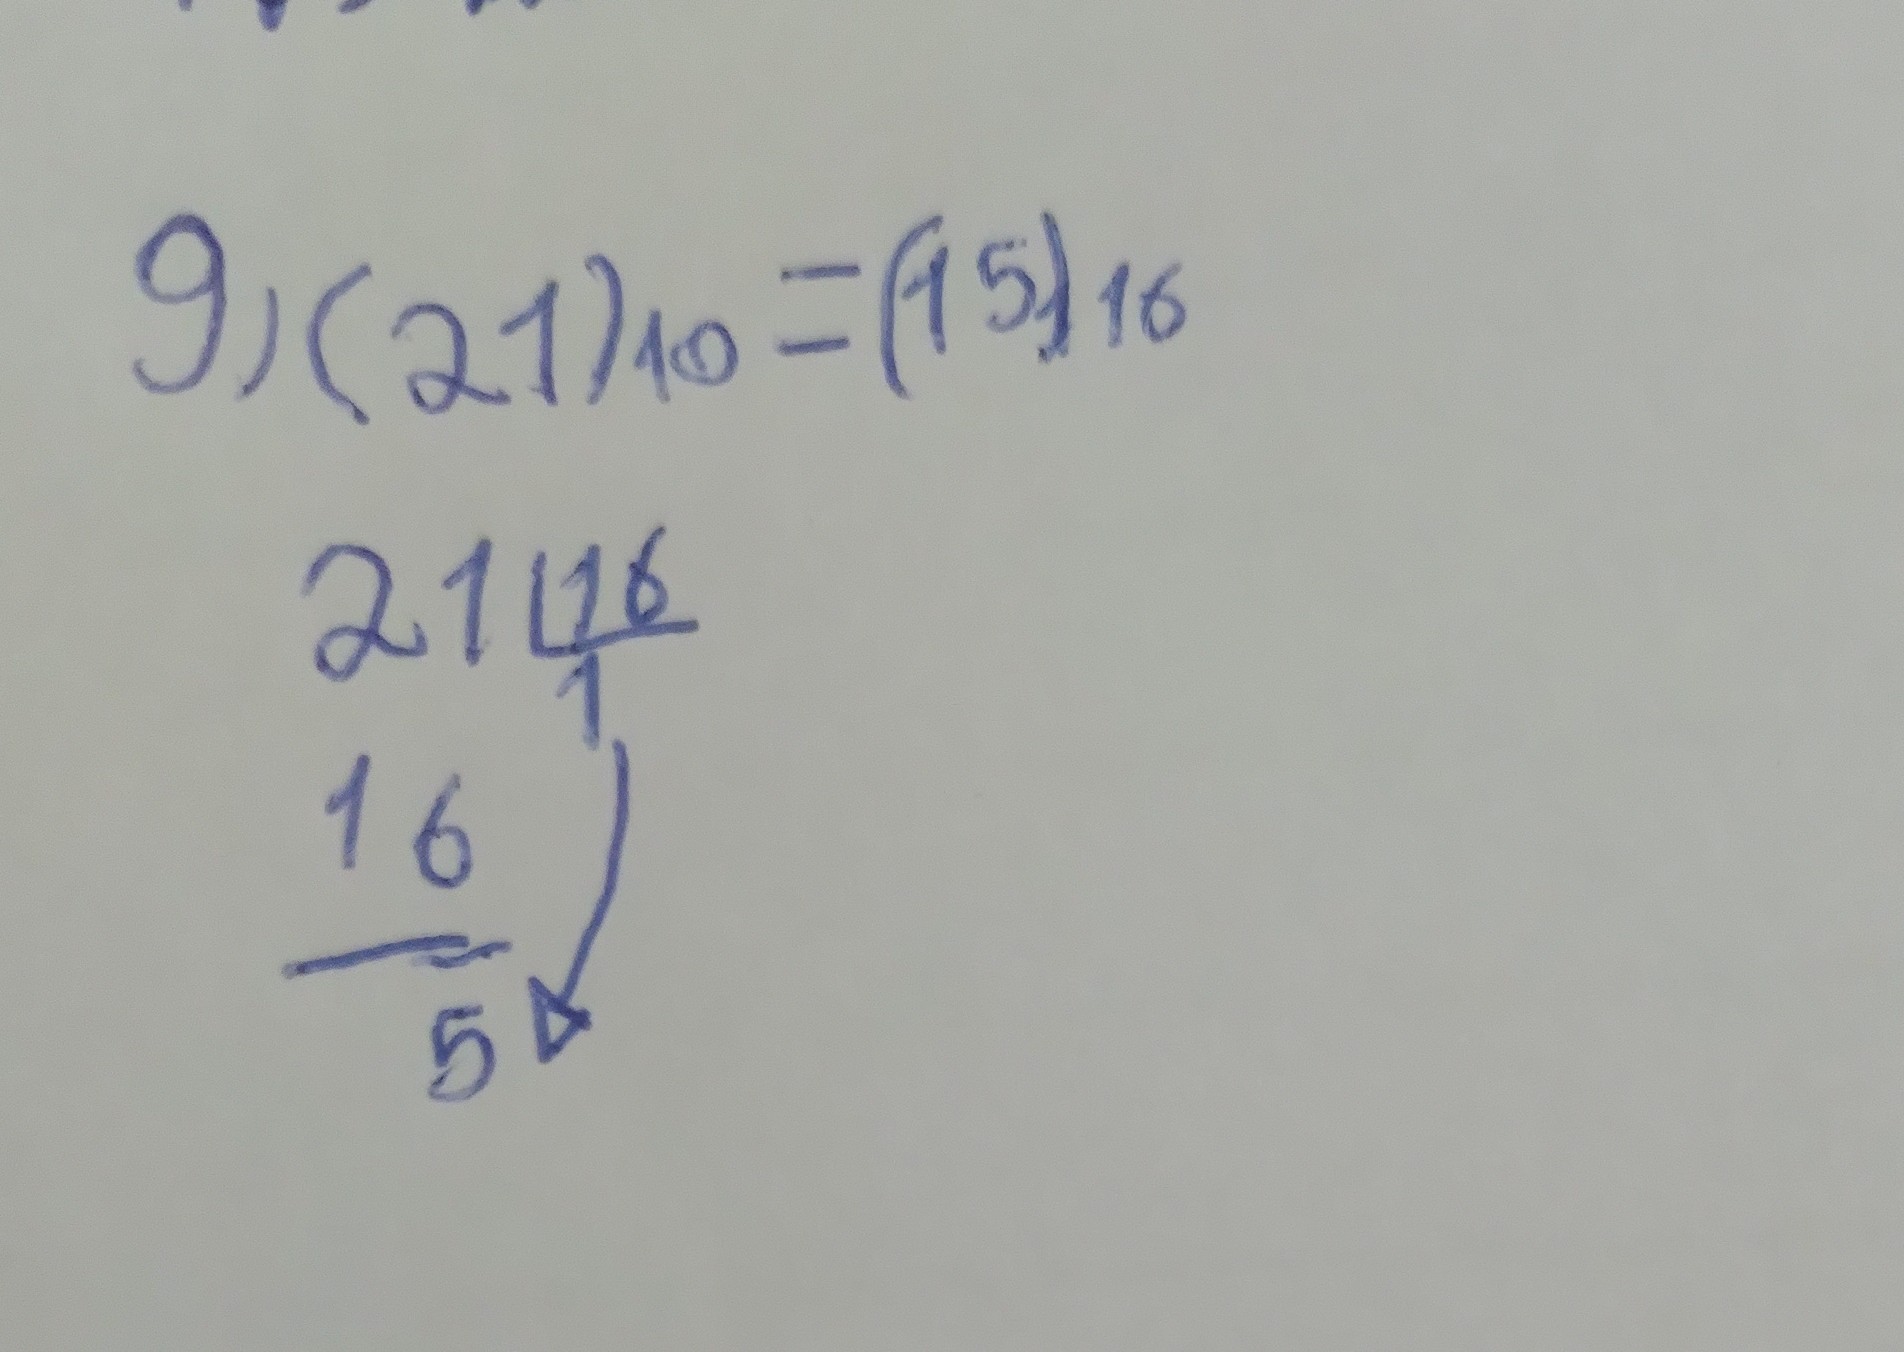 9) (21)10 = (15)16
21 16
1
16
5